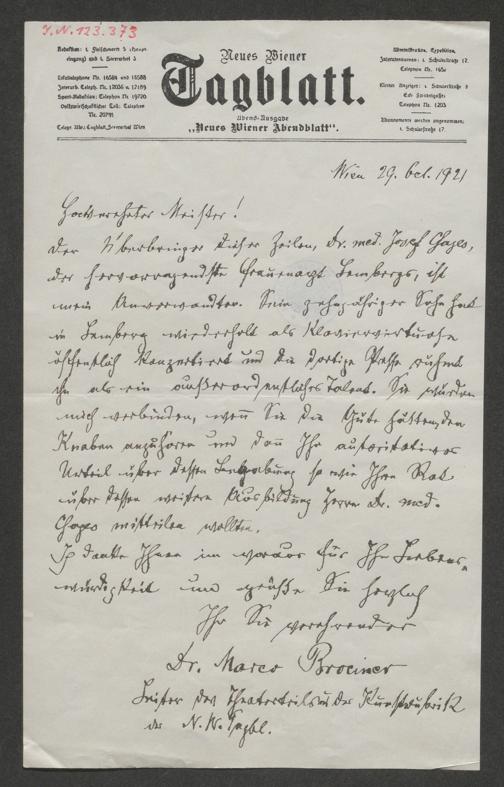 I.N. 123.373
Redaktion: I. Fleischmarkt 5 (Haupt-
eingang) und I. Steyrerhof 3
Lokaltelephone Nr. 16584 und 18588
Interurb. Teleph. Nr. 12036 u. 17189
Sport-Redaktion: Telephon Nr. 19720
Volkswirtschaftlicher Teil: Telephon
Nr. 20791
Telegr. Adr.: Tagblatt, Steyrerhof Wien
Neues Wiener
Tagblatt.
Abend-Ausgabe
„Neues Wiener Abendblatt“.
Administration, Expedition,
Inseratenannahme: I. Schulerstraße
Telephon Nr.
Kleiner Anzeiger: I. Schulerstraße
Telephon Nr. 1203
Abonnements werden angenommen:
I. Schulerstraße 17.
Wien 29. Oct. 1921
Hochverehrter Meister!
Der Überbringer dieser Zeilen, Dr. med. Josef Chajes,
der hervorragendste Frauenarzt Lembergs, ist
mein Anverwandter. Sein zehnjähriger Sohn hat
in Lemberg wiederholt als Klaviervirtuose
öffentlich konzertiert und die dortige Presse rühmt
ihn als ein außerordentliches Talent. Sie würden
mich verbinden, wenn Sie die Güte hätten, den
Knaben anzuhören und dann Ihr autoritatives
Urteil über dessen Begabung so wie Ihren Rat
über dessen weitere Ausbildung Herrn Dr. med.
Chajes mitteilen wollten.
Ich danke Ihnen im voraus für Ihr Liebens-
würdigkeit und grüße Sie herzlich
Ihr Sie verehrender
Dr. Marco Brociner
Leiter des Theaterteils u. der Kunstrubrik
des N. W. Tagbl.